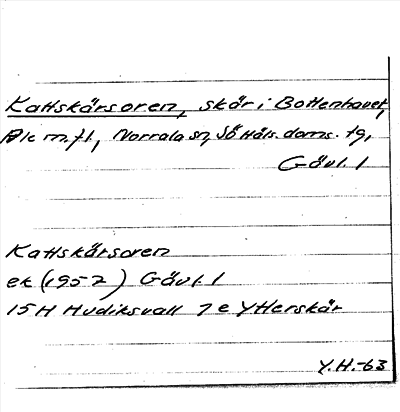 Kattskärsoren, skär i Bottenhavet,
Blk m.fl., Norrala sn, Sö Häls. doms. tg,
Gävl. l
Kattskärsoren
ek (1952) Gävl. l
15H Hudiksvall 7e Ytterskär
Y.H.-63